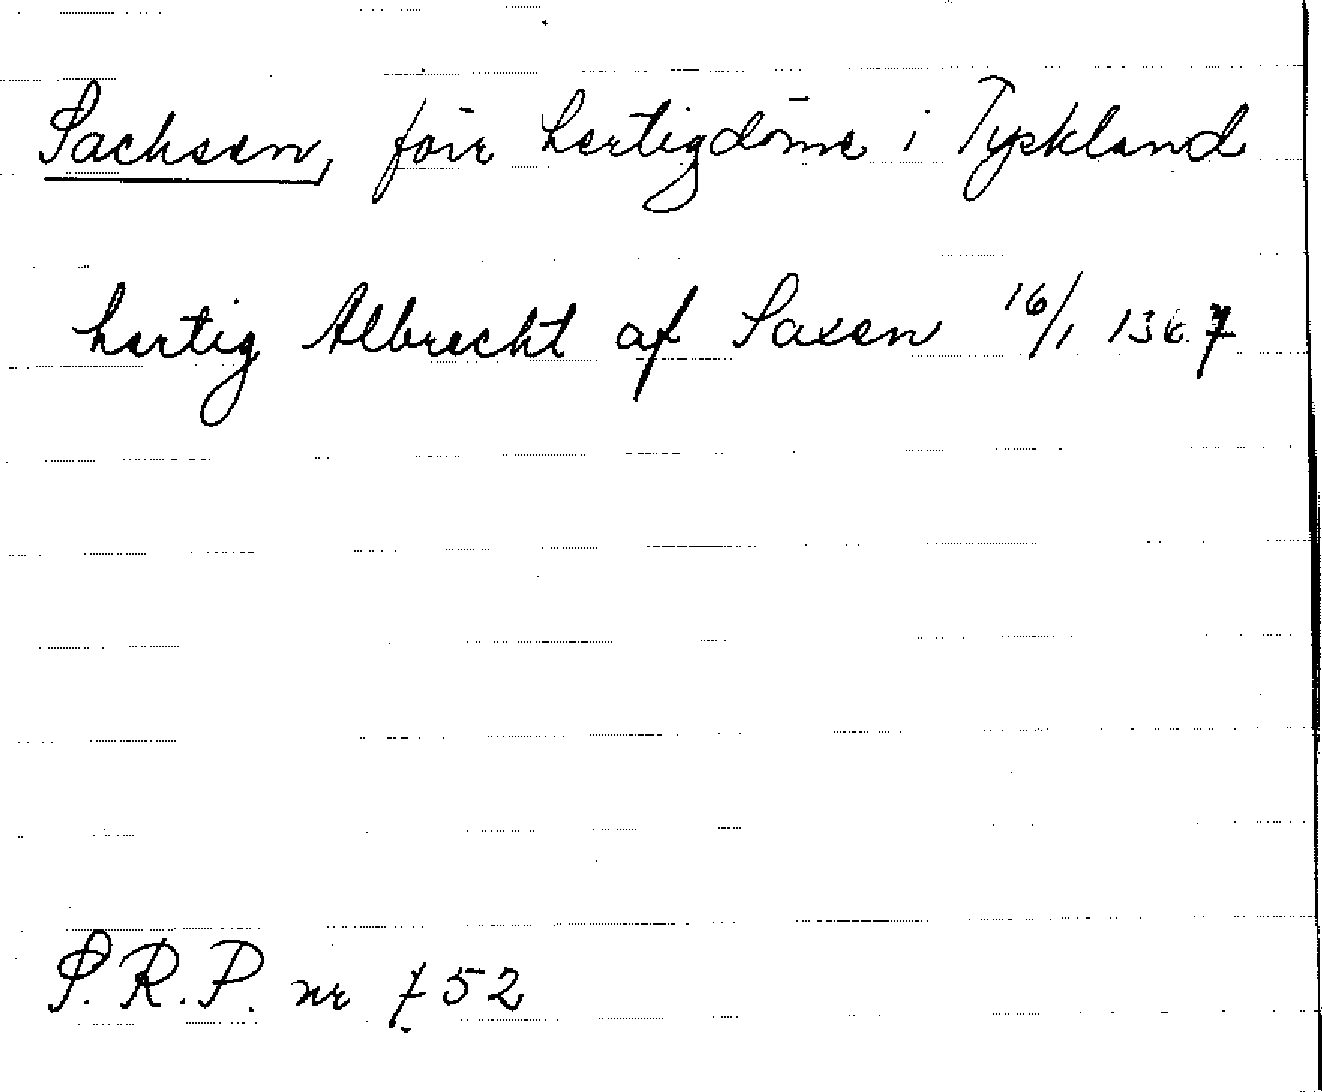 Sachsen, förr hertigdöme i Tyskland
hertig Albrecht af Saxen 16/1 1367
S.R.P. nr 752